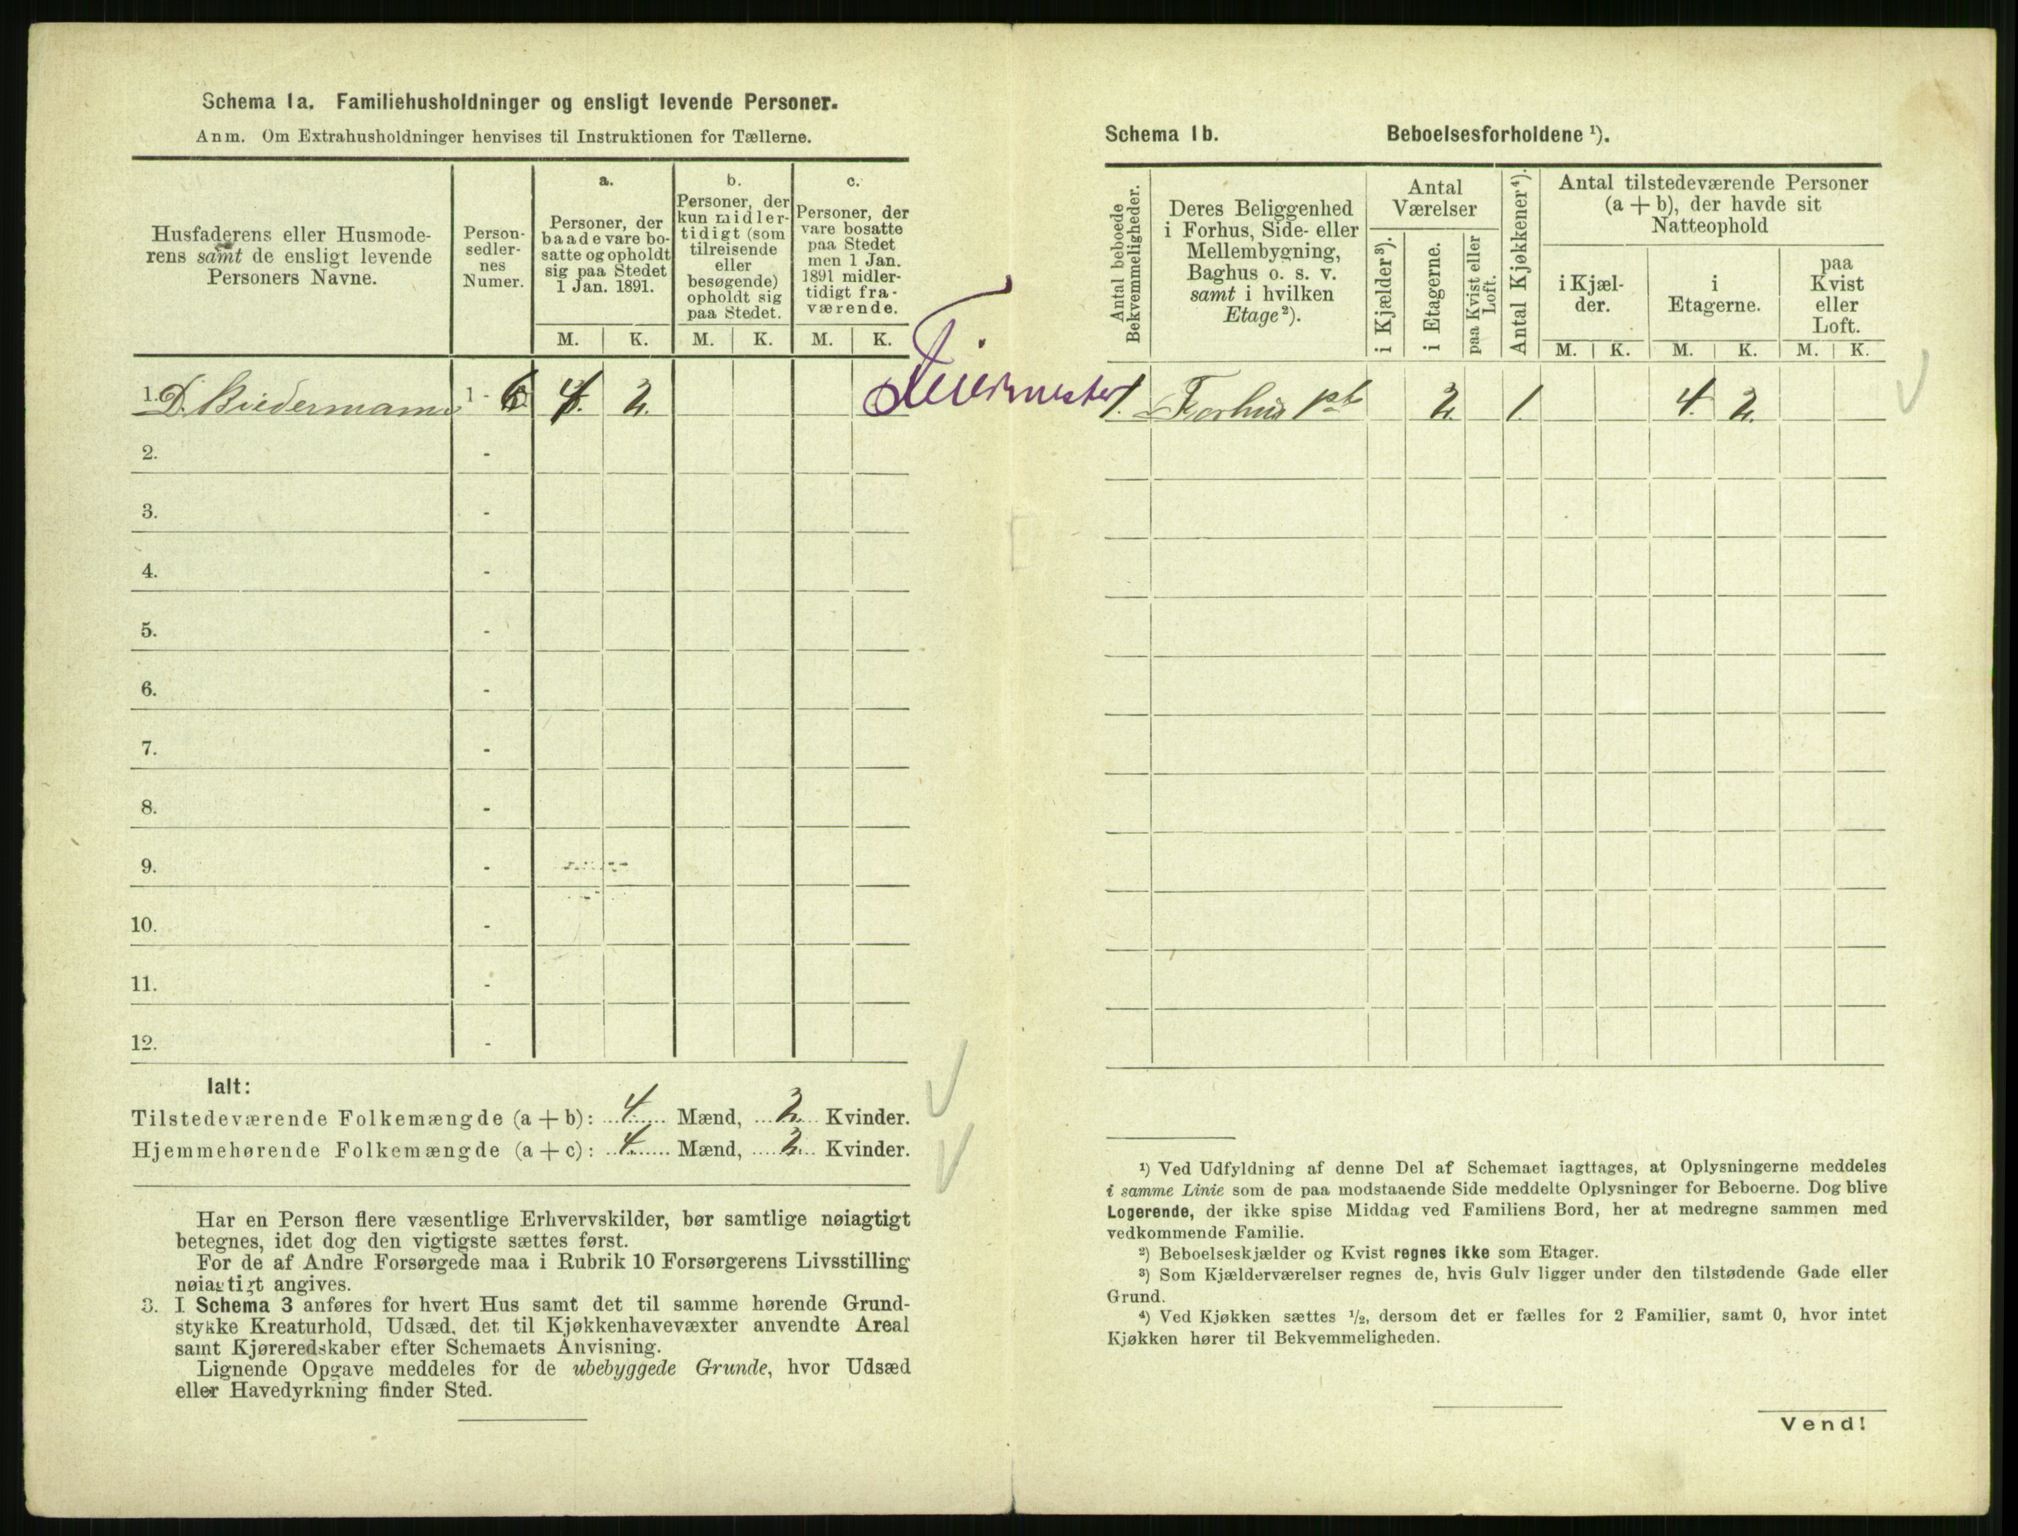 Schema 1a. Familiehusholdninger og ensligt levende Personer.
Anm. Om Extrahusholdninger henvises til Instruktionen for Tællerne.
Husfaderens eller Husmode-
rens samt de ensligt levende
Personers Navne.
Person-
sedler-
nes
Numer.
a.
Personer, der
baade vare bo-
satte og opholdt
sig paa Stedet
1 Jan. 1891.
b.
Personer, der
kun midler-
tidigt (som
tilreisende
eller
besøgende)
opholdt sig
paa Stedet.
c.
Personer, der
vare bosatte
paa Stedet
men 1 Jan.
1891 midler-
tidigt fra-
værende.
M. K. M. K. M. K.
1. D. Biedermann 1 - 6 4. 2.
2. -
3. -
4. -
5. -
6. -
7. -
8. -
9. -
10. -
11. -
12. -
Ialt:
Tilstedeværende Folkemængde (a + b): 4. Mænd, 2. Kvinder.
Hjemmehørende Folkemængde (a + c): 4. Mænd, 2. Kvinder.
Har en Person flere væsentlige Erhvervskilder, bør samtlige nøiagtigt
betegnes, idet dog den vigtigste sættes først.
For de af Andre Forsørgede maa i Rubrik 10 Forsørgerens Livsstilling
nøiagtigt angives.
3. I Schema 3 anføres for hvert Hus samt det til samme hørende Grund-
stykke Kreaturhold, Udsæd, det til Kjøkkenhavevæxter anvendte Areal
samt Kjøreredskaber efter Schemaets Anvisning.
Lignende Opgave meddeles for de ubebyggede Grunde, hvor Udsæd
eller Havedyrkning finder Sted.
Feiermester
Schema 1b. Beboelsesforholdene ¹).
Antal beboede
Bekvemmeligheder.
Deres Beliggenhed
i Forhus, Side- eller
Mellembygning,
Baghus o. s. v.
samt i hvilken
Etage ²).
Antal
Værelser
i Kjælder ³).
i Etagerne.
paa Kvist eller
Loft.
Antal Kjøkkener ⁴).
Antal tilstedeværende Personer
(a + b), der havde sit
Natteophold
i Kjæl-
der.
i
Etagerne.
paa
Kvist
eller
Loft.
M. K. M. K. M. K.
1. Forhus pt 2. 1. 4. 2.
¹) Ved Udfyldning af denne Del af Schemaet iagttages, at Oplysningerne meddeles
i samme Linie som de paa modstaaende Side meddelte Oplysninger for Beboerne. Dog blive
Logerende, der ikke spise Middag ved Familiens Bord, her at medregne sammen med
vedkommende Familie.
²) Beboelseskjælder og Kvist regnes ikke som Etager.
³) Som Kjælderværelser regnes de, hvis Gulv ligger under den tilstødende Gade eller
Grund.
⁴) Ved Kjøkken sættes ½, dersom det er fælles for 2 Familier, samt 0, hvor intet
Kjøkken hører til Bekvemmeligheden.
Vend!